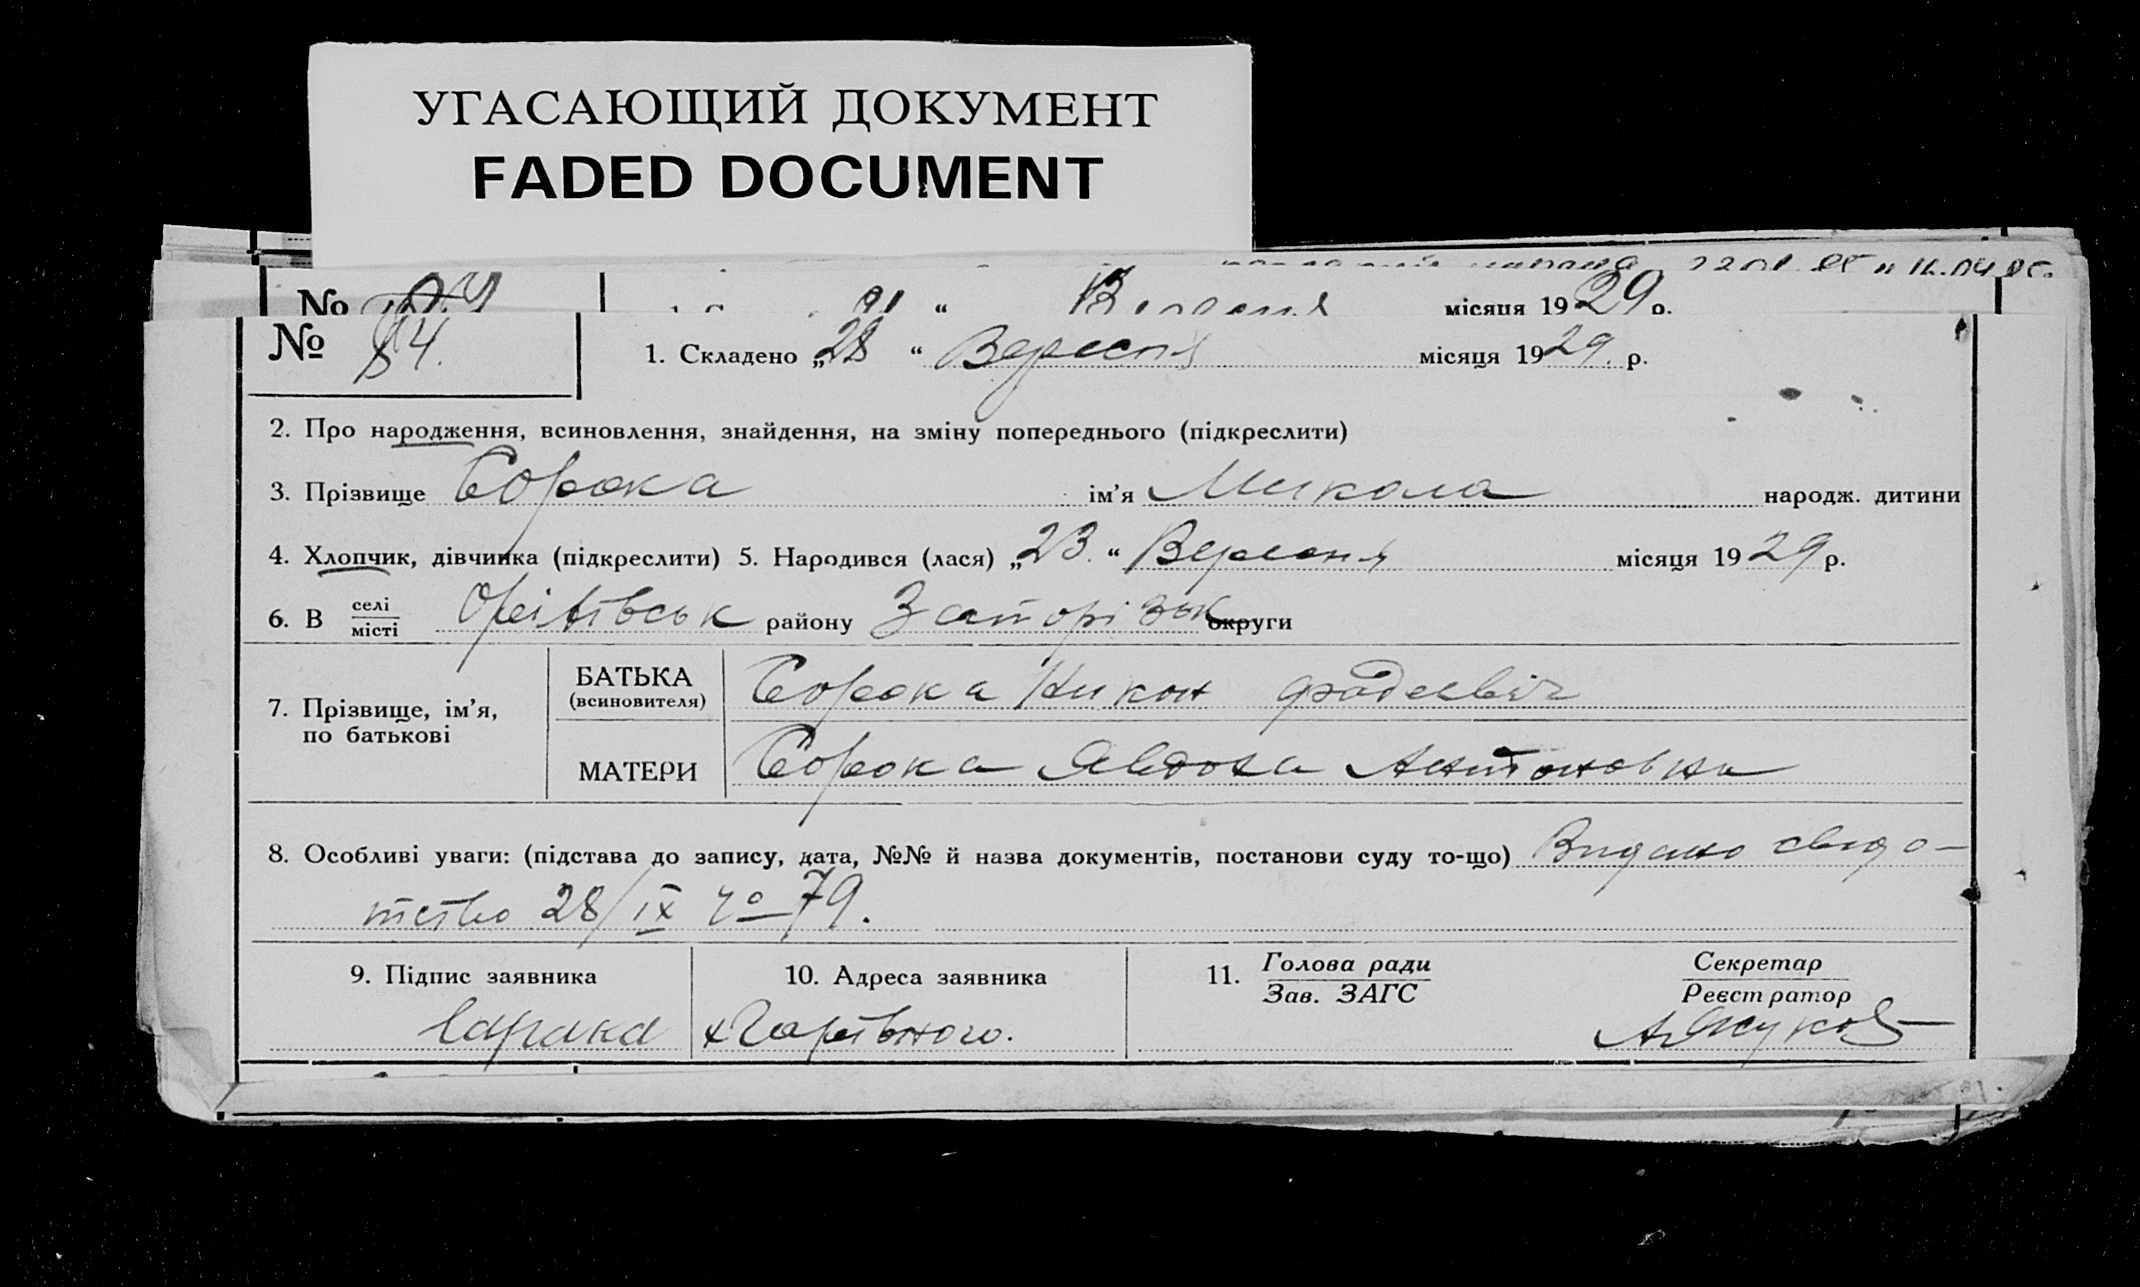 УГАСАЮЩИЙ ДОКУМЕНТ
FADED DOCUMENT
№ місяця 1929 р.
№ 84. 1. Складено „28“ Вересня місяця 1929. р.
2. Про народження, всиновлення, знайдення, на зміну попереднього (підкреслити)
3. Прізвище Сорока ім’я Микола народж. дитини
4. Хлопчик, дівчинка (підкреслити) 5. Народився (лася) „23.“ Вересня місяця 1929 р.
6. В селі
місті Оріхівськ району Запорізьк округи
7. Прізвище, ім’я,
по батькові
БАТЬКА
(всиновителя) Сорока Никон Фадеевіч
МАТЕРИ Сорока Явдоха Антоновна
8. Особливі уваги: (підстава до запису, дата, №№ й назва документів, постанови суду то-що) Видано свидо-
тство 28/IX № 79.
9. Підпис заявника 10. Адреса заявника 11. Голова ради Секретар
Зав. ЗАГС Реєстратор
Сарака